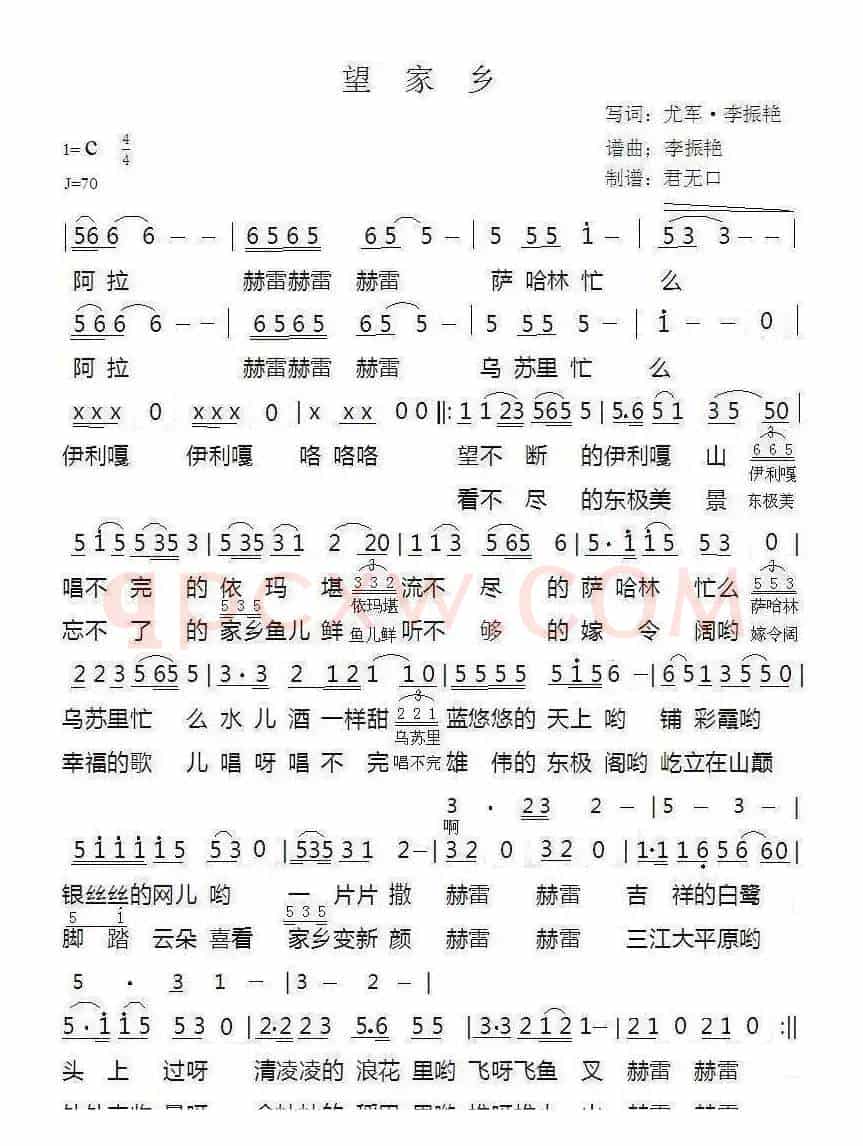 望 家 乡
写词：尤军·李振艳
1=C 4/4
谱曲；李振艳
J=70
制谱：君无口
|566 6 - - | 6565 65 5 - | 5 55 i - | 53 3 - - |
阿拉 赫雷赫雷 赫雷 萨 哈林 忙 么
566 6 - - | 6565 65 5 - | 5 55 5 - | i - - 0 |
阿拉 赫雷赫雷 赫雷 乌 苏里 忙 么
xxx 0 xxx 0 | x xx 00 ||: 1123 5655 | 5.651 35 50 |
伊利嘎 伊利嘎 咯 咯咯 望不 断 的伊利嘎 山 665 伊利嘎
看不 尽 的东极美 景 东极美
5i5 5353 | 53531 2 20 | 113 565 6 | 5·ii5 53 0 |
唱不完 的 依 玛 堪 332 流不 尽 的 萨哈林 忙么 553
535 依玛堪 萨哈林
忘不了 的 家乡鱼儿 鲜 鱼儿鲜 听不 够 的 嫁 令 阔哟 嫁令阔
2235655 | 3·3 2 121 10 | 5555 5i56 - | 6513555 |
乌苏里忙 么 水 儿 酒 一样甜 221 蓝悠悠的 天上 哟 铺 彩霞哟
乌苏里
幸福的歌 儿 唱 呀 唱 不 完 唱不完 雄 伟的 东极 阁哟 屹立在山巅
3 · 23 2 - | 5 - 3 - |
啊
5iiii5 530 | 53531 2 - | 320 320 | 1·116 5660 |
银丝丝的网儿 哟 一 片片 撒 赫雷 赫雷 吉 祥的白鹭
5 i 535
脚 踏 云朵 喜看 家乡变新 颜 赫雷 赫雷 三江大平原哟
5 · 3 1 - | 3 - 2 - |
5·ii5 530 | 2·225 5.6 55 | 3·3 2212 1 - | 210 210 :||
头 上 过呀 清凌凌的 浪花 里哟 飞呀飞鱼 叉 赫雷 赫雷